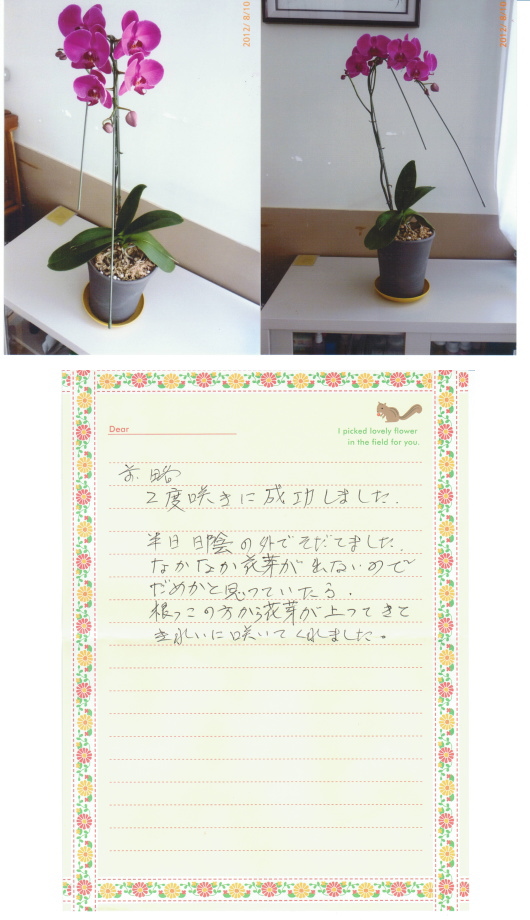 2012/ 8/10
2012/ 8/10
Dear
I picked lovely flower
in the field for you.
前略
2度咲きに成功しました.
半日 日陰の外でそだてました.
なかなか花芽が出ないので
だめかと思っていたら.
根っこの方から花芽が上ってきて
きれいに咲いてくれました。